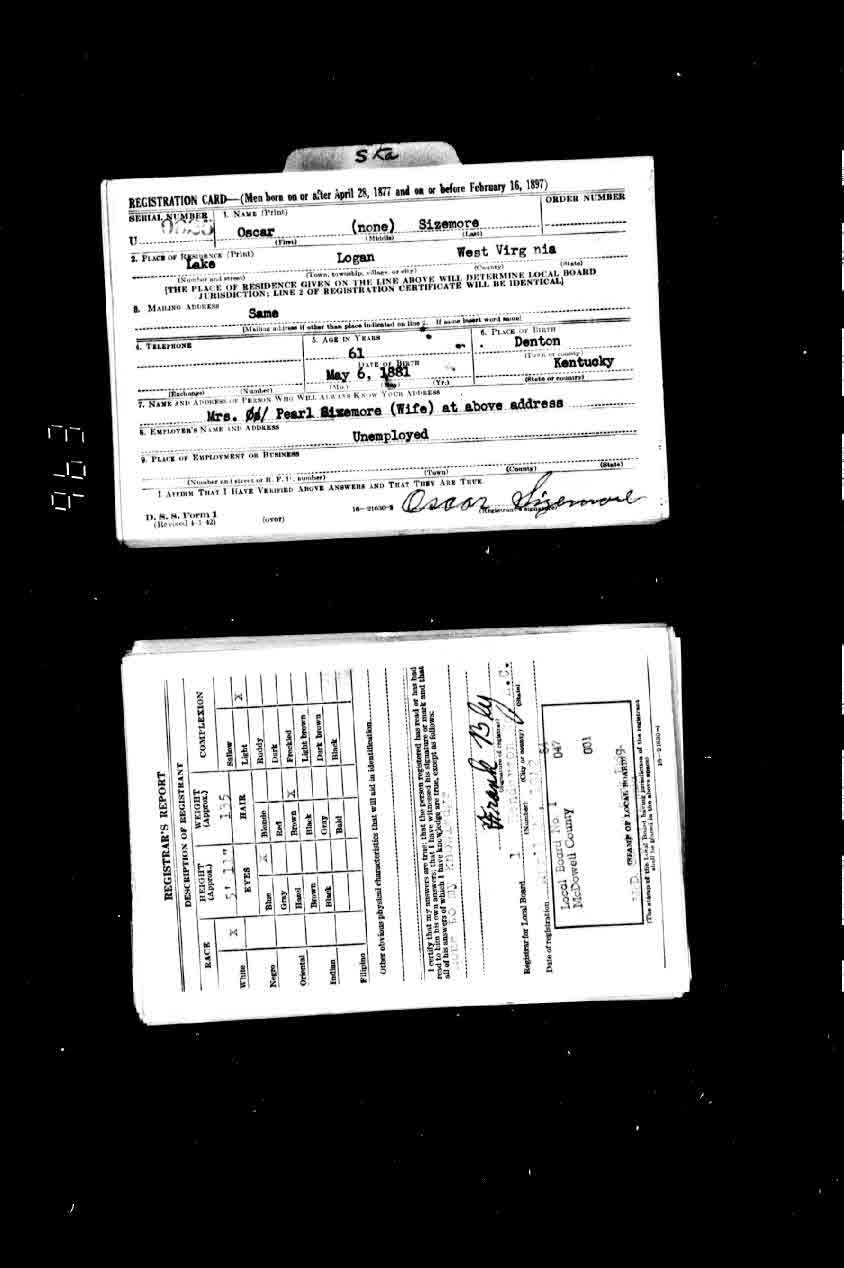 Ska
REGISTRATION CARD—(Men born on or after April 28, 1877 and on or before February 16, 1897)
SERIAL NUMBER 1. NAME (Print) ORDER NUMBER
U Oscar (none) Sizemore
(First) (Middle) (Last)
2. PLACE OF RESIDENCE (Print)
Lake Logan West Virg nia
(Number and street) (Town, township, village, or city) (County) (State)
[THE PLACE OF RESIDENCE GIVEN ON THE LINE ABOVE WILL DETERMINE LOCAL BOARD
JURISDICTION; LINE 2 OF REGISTRATION CERTIFICATE WILL BE IDENTICAL]
3. MAILING ADDRESS
Same
[Mailing address if other than place indicated on line 2. If same insert word same]
4. TELEPHONE 5. AGE IN YEARS 6. PLACE OF BIRTH
61 Denton
DATE OF BIRTH (Town or county)
May 6, 1881 Kentucky
(Exchange) (Number) (Mo.) (Day) (Yr.) (State or country)
7. NAME AND ADDRESS OF PERSON WHO WILL ALWAYS KNOW YOUR ADDRESS
Mrs. Pearl Sizemore (Wife) at above address
8. EMPLOYER'S NAME AND ADDRESS
Unemployed
9. PLACE OF EMPLOYMENT OR BUSINESS
(Number and street or R. F. D. number) (Town) (County) (State)
I AFFIRM THAT I HAVE VERIFIED ABOVE ANSWERS AND THAT THEY ARE TRUE.
Oscar Sizemore
D. S. S. Form 1 16—21630-2 (Registrant's signature)
(Revised 4-1-42) (over)
963
REGISTRAR'S REPORT
DESCRIPTION OF REGISTRANT
RACE HEIGHT (Approx.) WEIGHT (Approx.) COMPLEXION
5' 11" 155 Sallow
White X EYES HAIR Light X
Blue X Blonde Ruddy
Negro Gray Red Dark
Hazel Brown X Freckled
Oriental Brown Black Light brown
Indian Black Gray Dark brown
Bald Black
Filipino
Other obvious physical characteristics that will aid in identification
I certify that my answers are true; that the person registered has read or has had
read to him his own answers; that I have witnessed his signature or mark and that
all of his answers of which I have knowledge are true, except as follows:
None to my
Frank
(Signature of registrar)
Registrar for Local Board 1
(Number) (City or county) (State)
Date of registration
Local Board No. 1 047
McDowell County 001
(STAMP OF LOCAL BOARD)
(The stamp of the Local Board having jurisdiction of the registrant
shall be placed in the above space)
16—21630-1